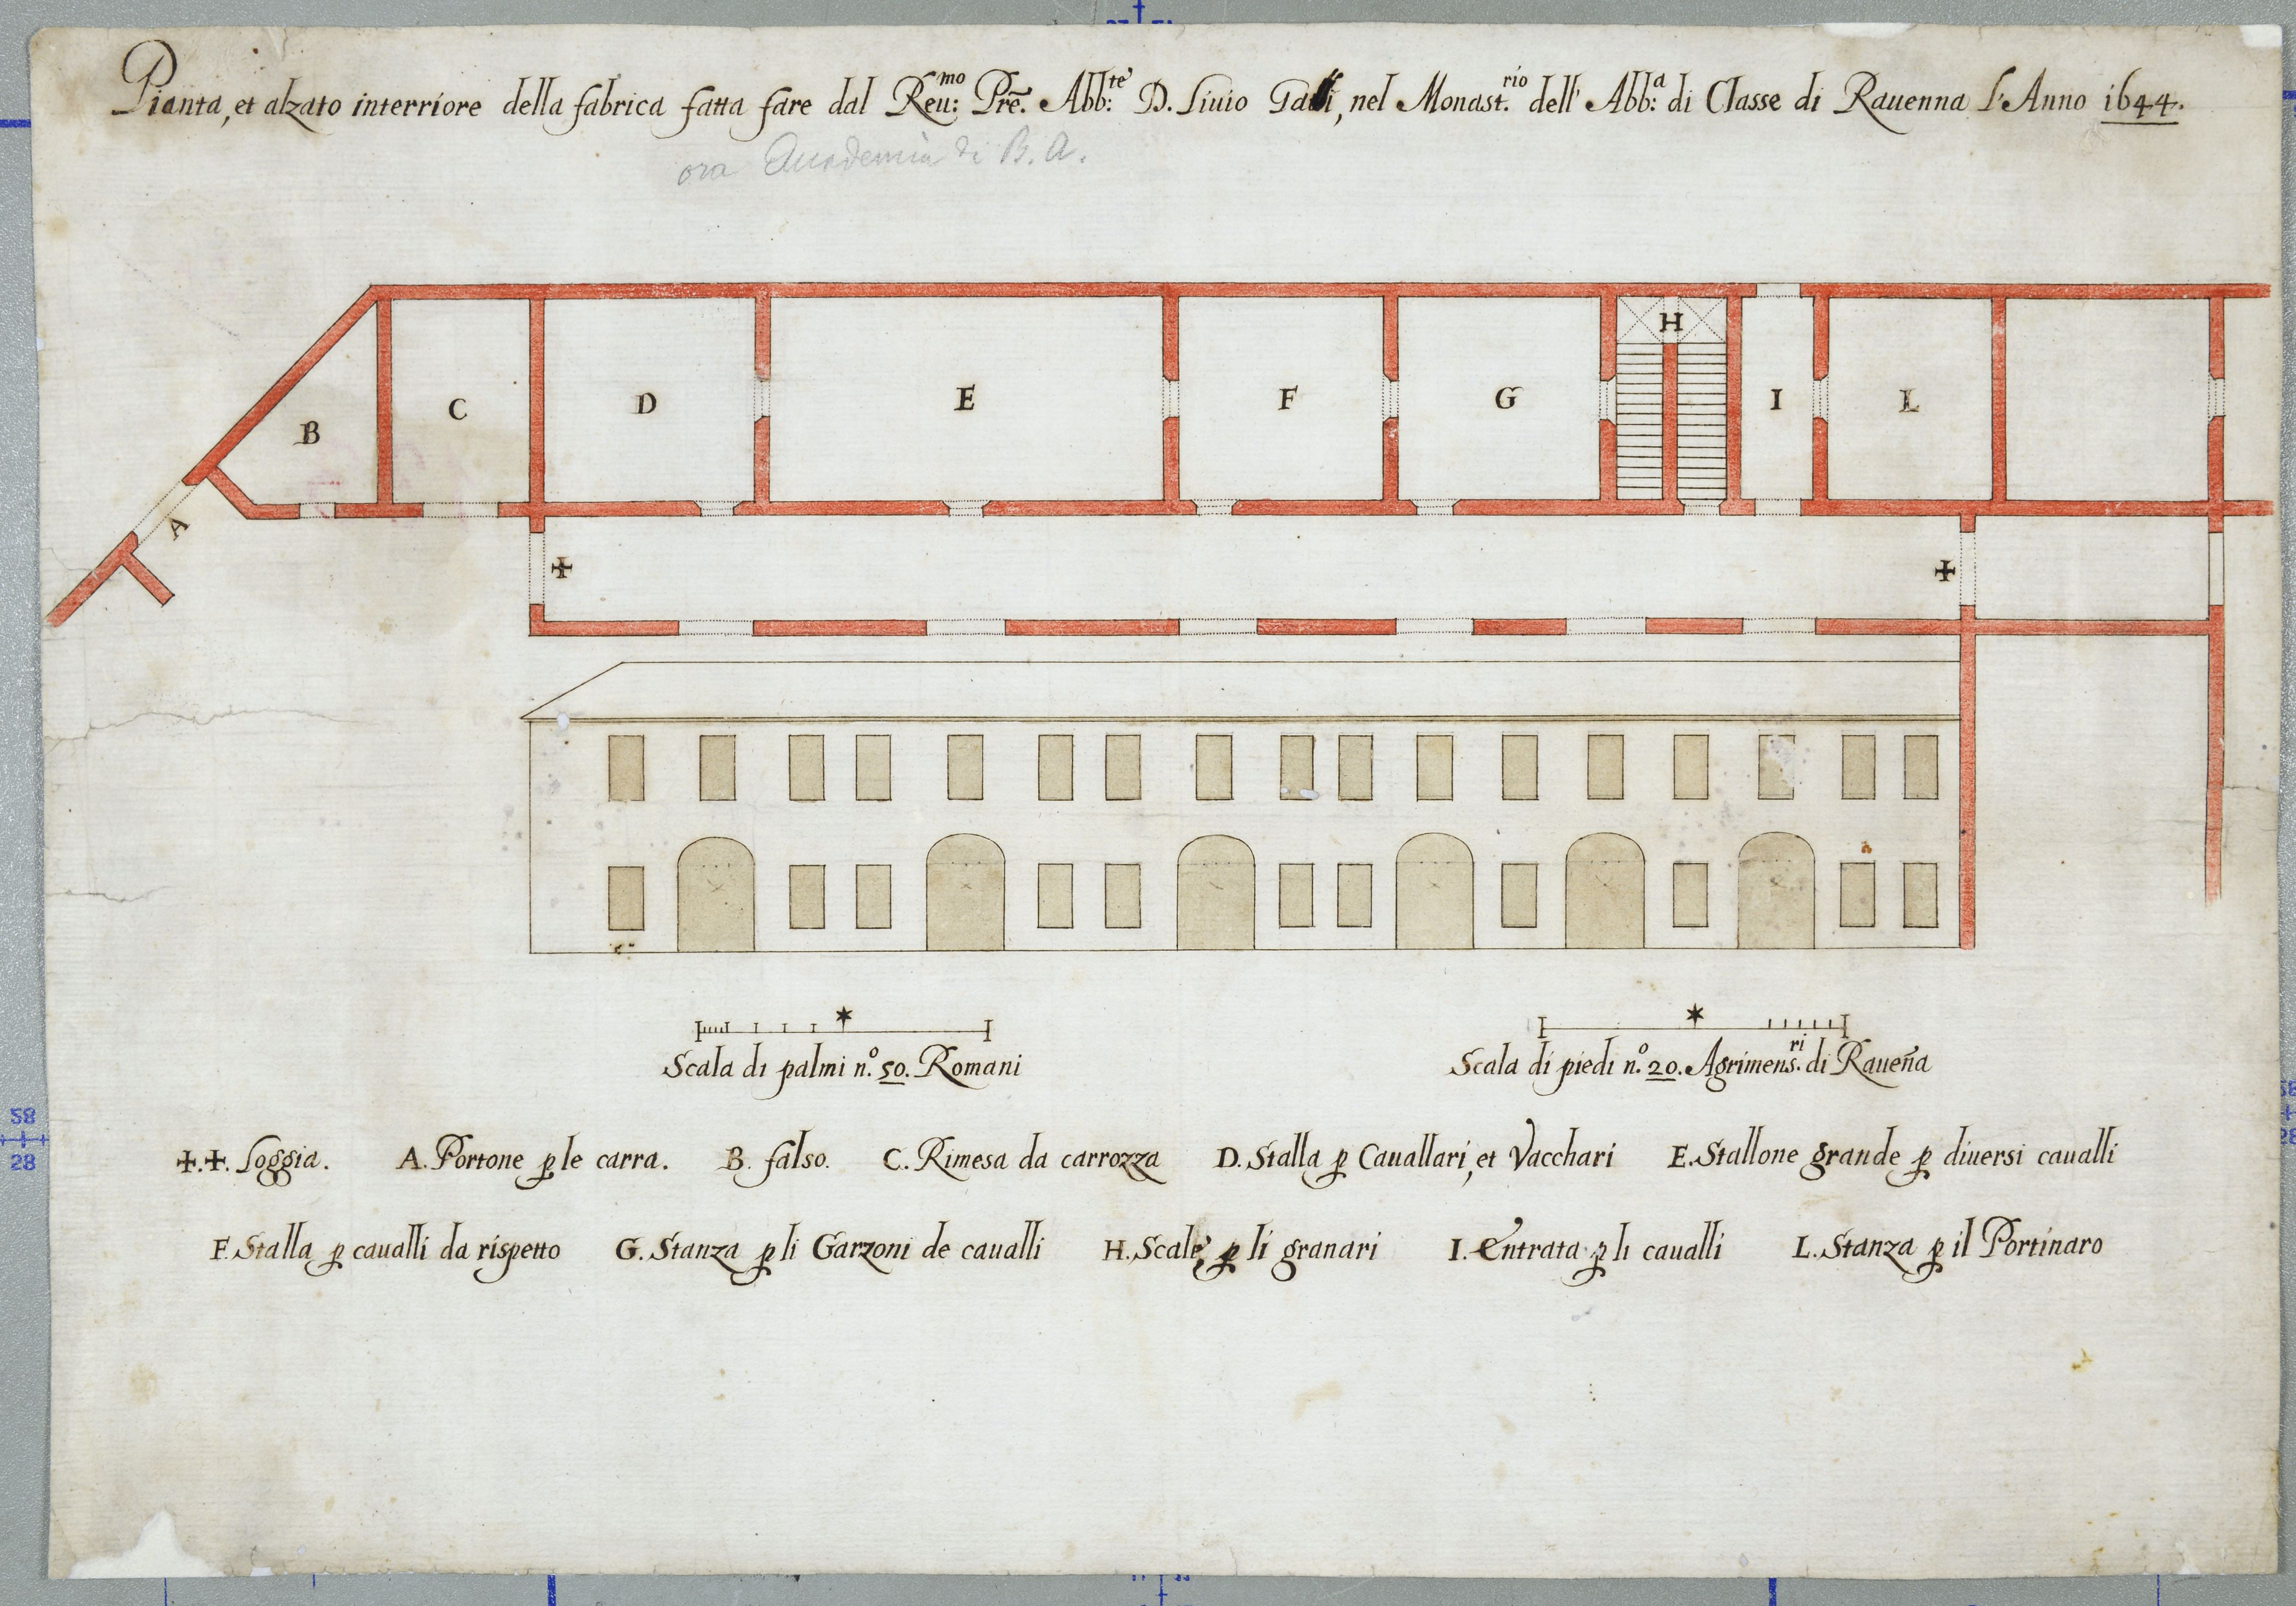 Pianta, et alzato interriore della fabrica fatta fare dal Reu:mo Prẽ. Abb:te D. Liuio Galli, nel Monast.rio dell' Abb:a di Classe di Rauenna L'Anno 1644.
ora Accademia di B. A.
H
B C D E F G I L
A
✠ ✠
Scala di palmi n.o 50. Romani
Scala di piedi n.o 20. Agrimens.ri di Raueña
✠.✠. Loggia. A. Portone ꝑ le carra. B. falso. C. Rimesa da carrozza D. Stalla ꝑ Cauallari, et Vacchari E. Stallone grande ꝑ diuersi caualli
F. Stalla ꝑ caualli da rispetto G. Stanza ꝑ li Garzoni de caualli H. Scale ꝑ li granari I. Entrata ꝑ li caualli L. Stanza ꝑ il Portinaro
58
28